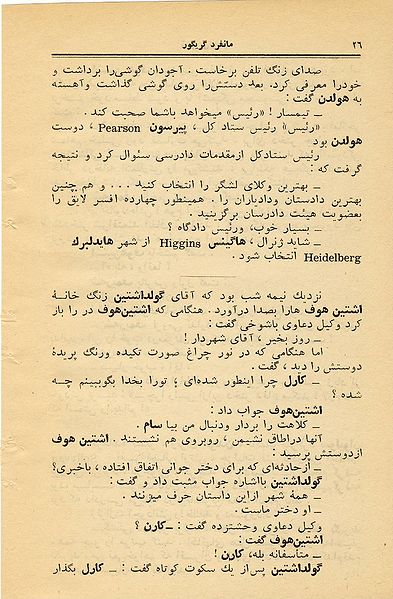 ۲۶
مانفرد گریگور
صدای زنگ تلفن برخاست . آجودان گوشی‌را برداشت و
خودرا معرفی کرد. بعد دستش‌را روی گوشی گذاشت وآهسته
به هولدن گفت :
ــ تیمسار ! «رئیس» میخواهد باشما صحبت کند .
«رئیس» رئیس ستاد کل ، پیرسون Pearson ، دوست
هولدن بود
رئیس ستادکل ازمقدمات دادرسی سئوال کرد و نتیجه
گرفت که :
ــ بهترین وکلای لشگر را انتخاب کنید ... و هم چنین
بهترین دادستان ودادیاران را . همینطور چهارده افسر لایق را
بعضویت هیئت دادرسان برگزینید .
ــ بسیار خوب، ورئیس دادگاه ؟
ــ شاید ژنرال ، هاگینس Higgins از شهر هایدلبرك
Heidelberg انتخاب شود .
نزدیك نیمه شب بود که آقای گولداشتین زنگ خانهٔ
اشتین هوف هارا بصدا درآورد. هنگامی که اشتین‌هوف در را باز
کرد وکیل دعاوی باشوخی گفت :
ــ روز بخیر ، آقای شهردار !
اما هنگامی که در نور چراغ صورت تکیده ورنگ پریدهٔ
دوستش را دید ، گفت .
ــ کارل چرا اینطور شده‌ای ؛ تورا بخدا بگوببینم چــه
شده ؟
اشتین‌هوف جواب داد :
ــ کلاهت را بردار ودنبال من بیا سام .
آنها دراطاق نشیمن ، روبروی هم نشستند . اشتین هوف
ازدوستش پرسید :
ــ ازحادثه‌ای که برای دختر جوانی اتفاق افتاده ، باخبری؟
گولداشتین بااشاره جواب مثبت داد و گفت :
ــ همهٔ شهر ازاین داستان حرف میزنند .
ــ او دختر ماست .
وکیل دعاوی وحشتزده گفت : ــکارن ؟
اشتین‌هوف گفت :
ــ متأسفانه بله، کارن !
گولداشتین پس‌از یك سکوت کوتاه گفت : ــ کارل بگذار